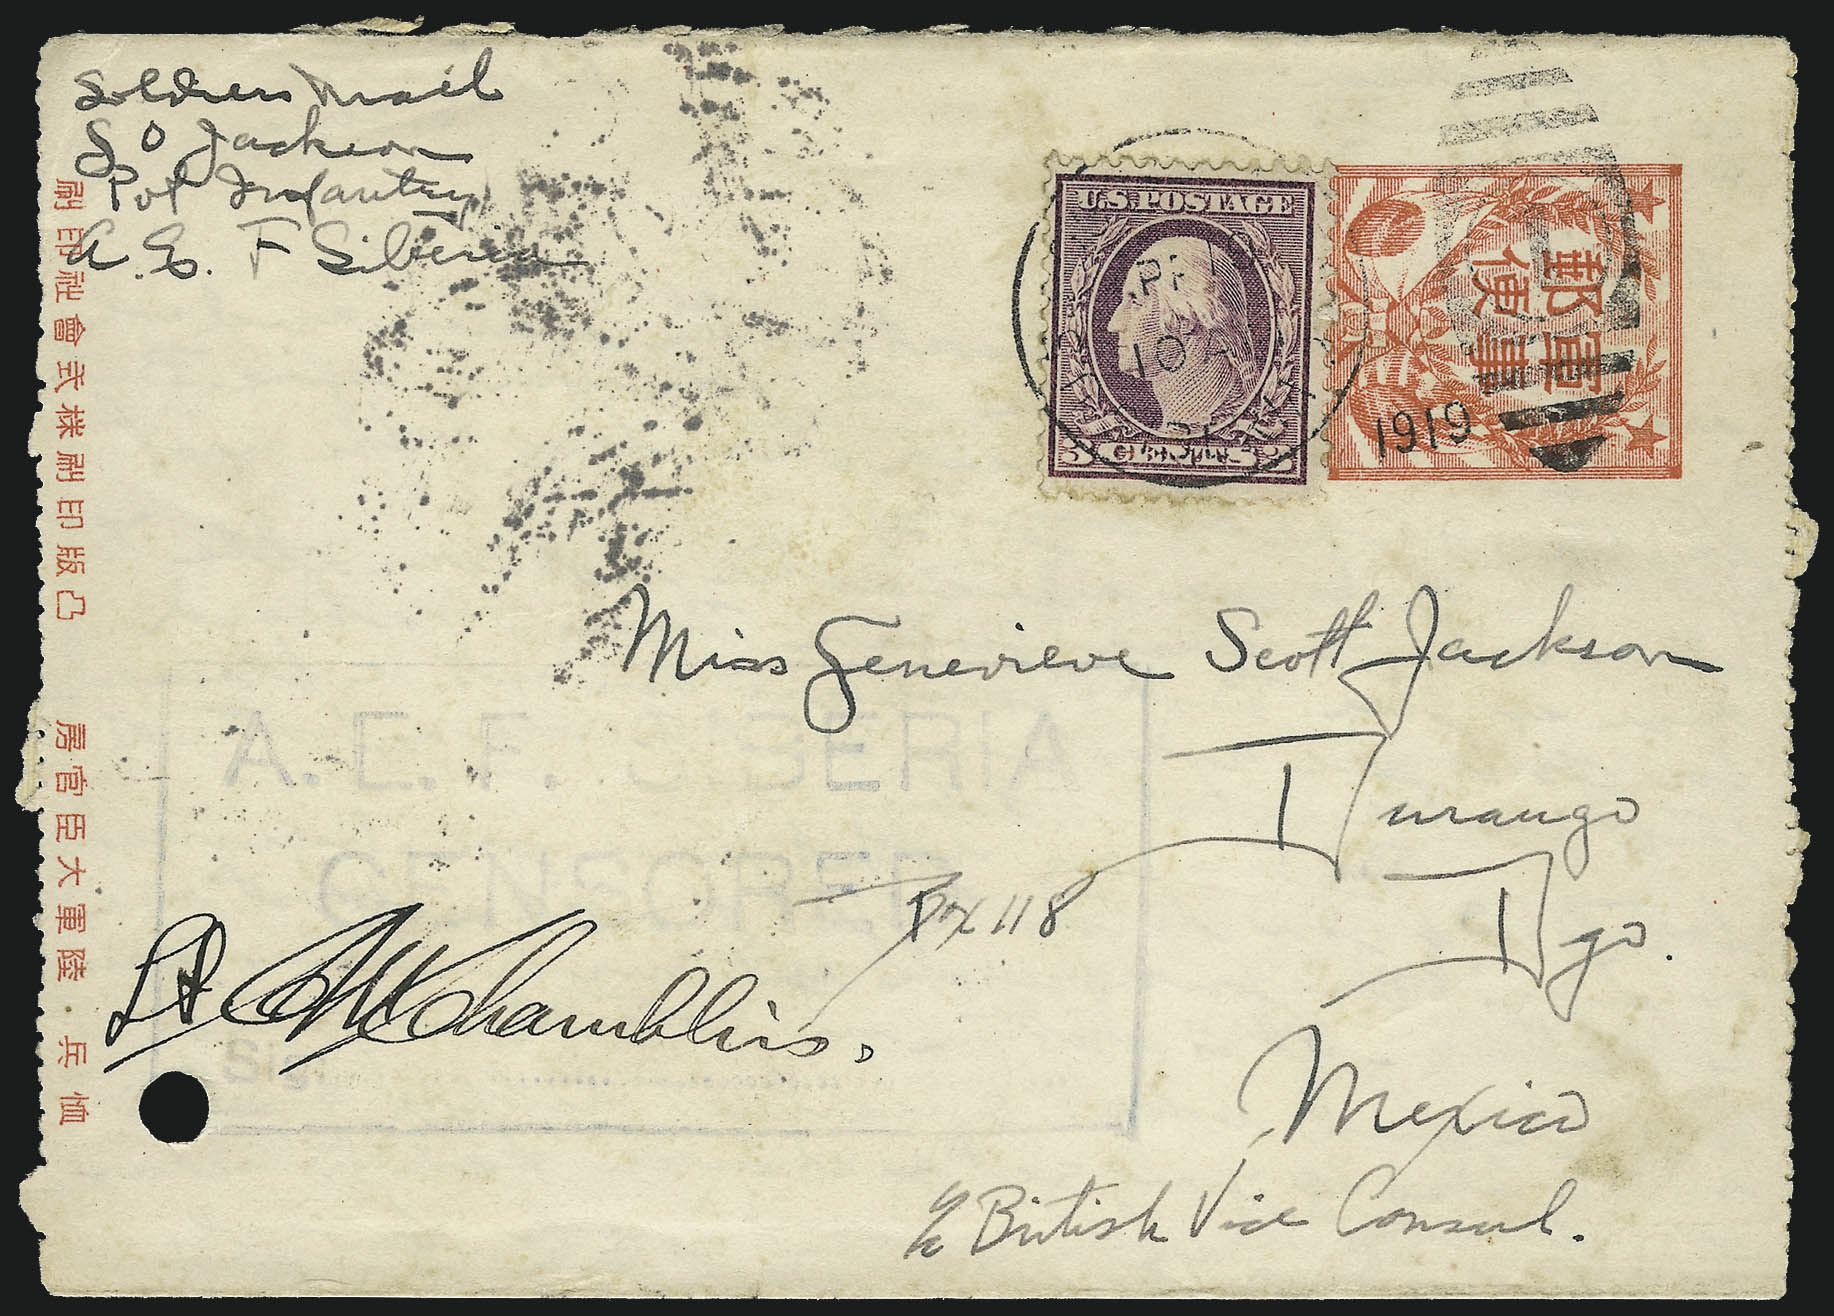 Soldiers Mail
S O Jackson
Pvt Infantry
A. E. F Siberia
U.S. POSTAGE
10
1919
軍事
郵便
Miss Genevieve Scott Jackson
Durango
Dgo.
Mexico
c/o British Vice Consul.
A. E. F. SIBERIA
CENSORED
Sig.
Lt Chambliss.
118
恤兵・陸軍大臣官房
凸版印刷株式會社印刷